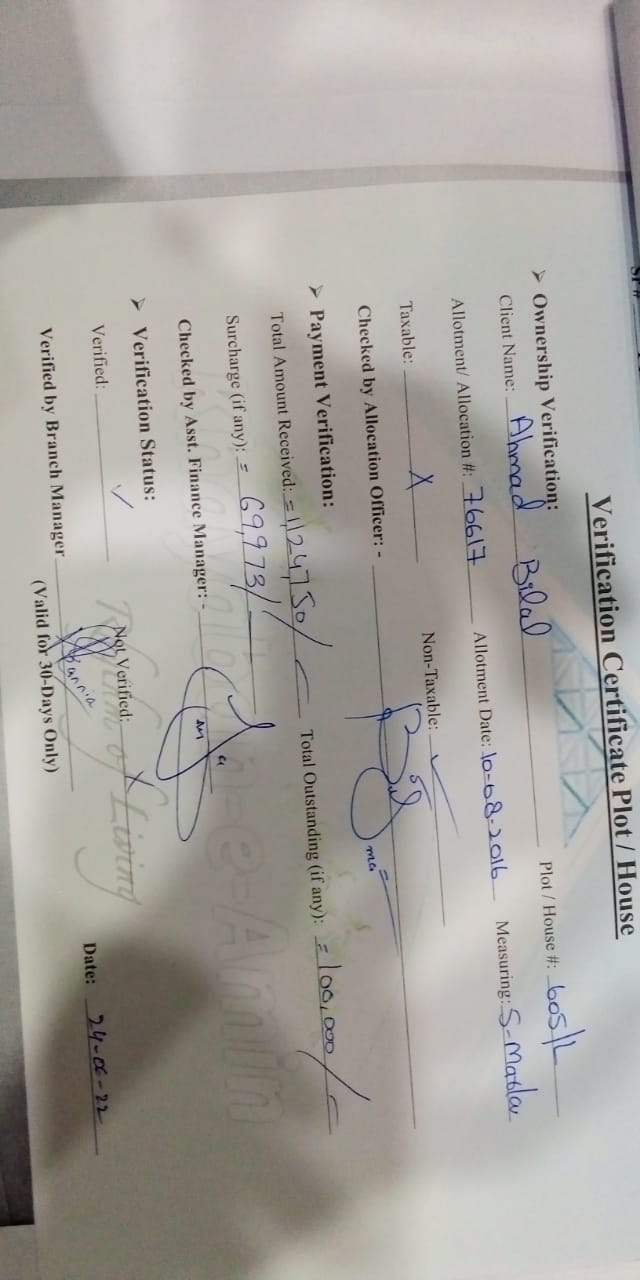 Sr #
Verification Certificate Plot / House
➢ Ownership Verification:
Client Name: Ahmad Bilal Plot / House #: 605/L
Allotment/ Allocation #: 76617 Allotment Date: 10-08-2016 Measuring: 5-Marla
Taxable: X Non-Taxable: ✓
Checked by Allocation Officer: -
➢ Payment Verification:
Total Amount Received: =1124,750/= Total Outstanding (if any): =100,000/=
Surcharge (if any): = 69,973/
Checked by Asst. Finance Manager: -
➢ Verification Status:
Verified: ✓ Not Verified: X
Verified by Branch Manager Date: 24-06-22
(Valid for 30-Days Only)